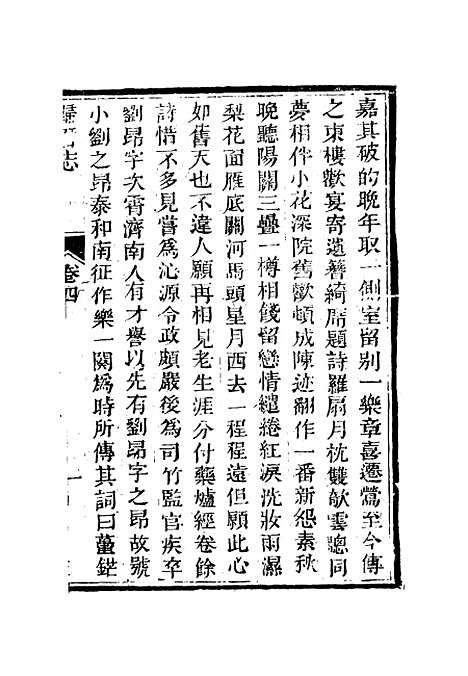 嘉其破的晚年取一側室留别一樂章喜遷鶯至今傳
之東樓歡宴寄遺簪綺席題詩羅扇月枕雙欹雲窻同
夢相伴小花深院舊歡頓成陳迹翻作一番新怨素秋
晚聽陽關三疊一樽相餞留戀情繾綣紅淚洗妝雨濕
梨花面雁底關河馬頭星月西去一程程遠但願此心
如舊天也不違人願再相見老生涯分付藥爐經卷餘
詩惜不多見嘗爲沁源令政頗嚴後爲司竹監官疾卒
劉昂字次霄濟南人有才譽以先有劉昂字之昂故號
小劉之昂泰和南征作樂一闋爲時所傳其詞曰蠆鋩
歸潛志
卷四